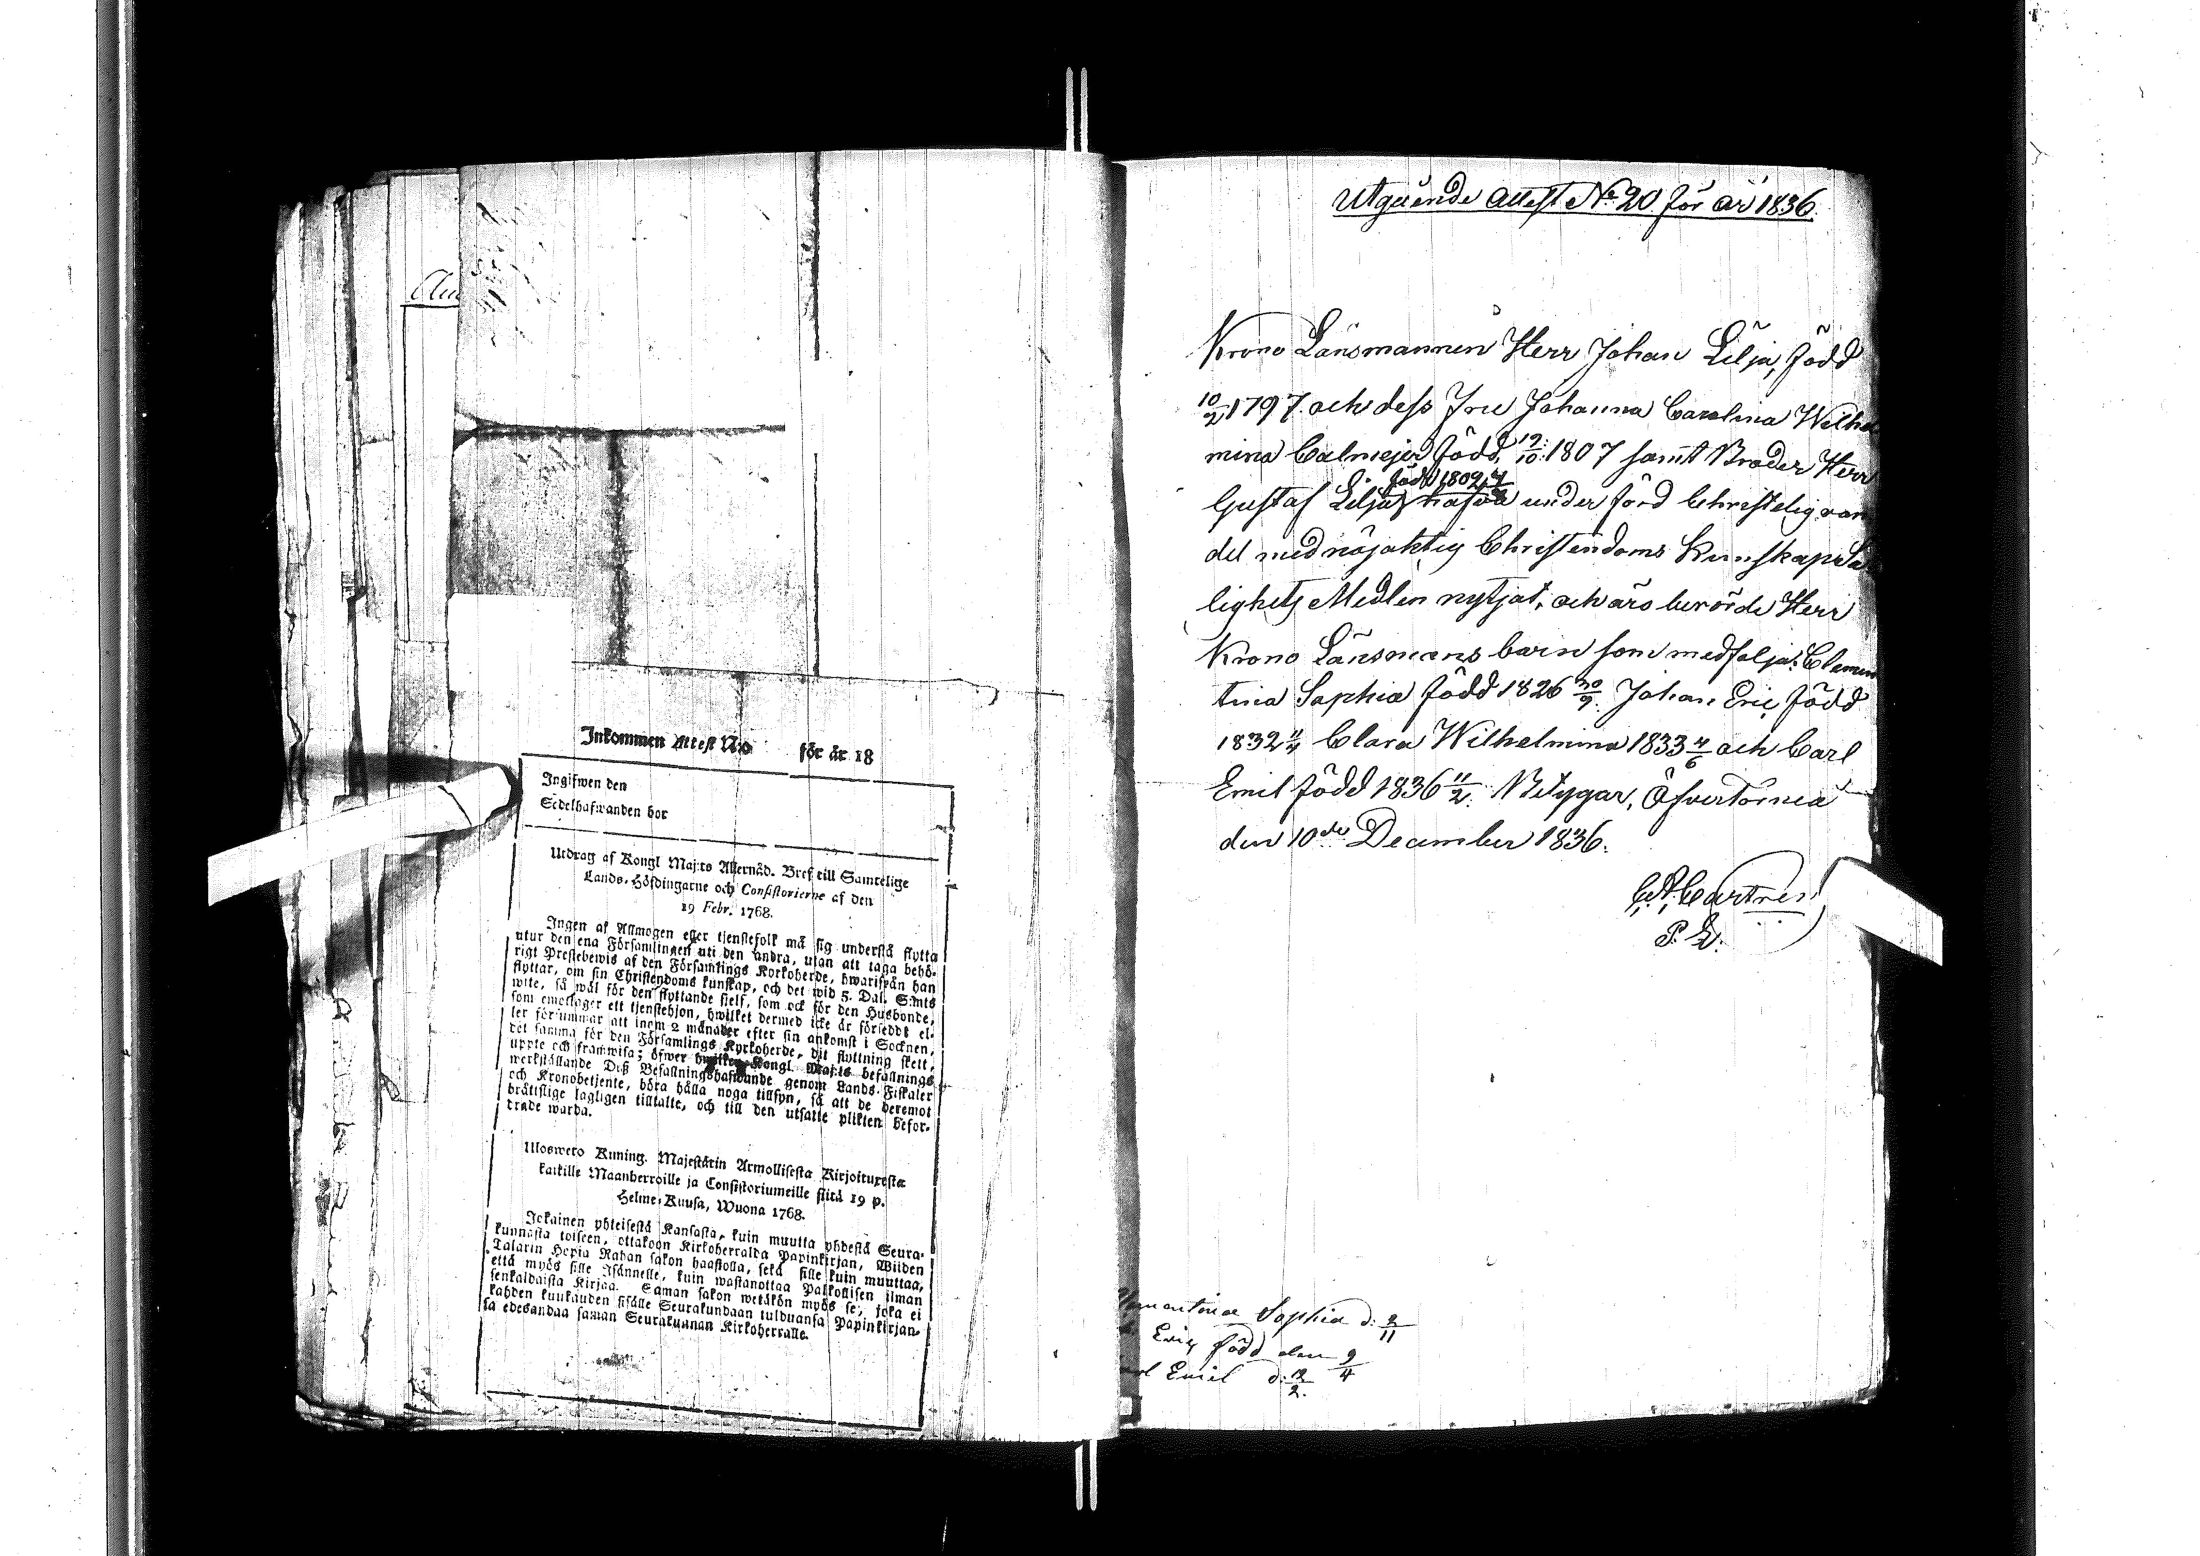 Inkommen Attest N:o för år 18
Ingifwen den
Sedelhafwanden bor
Utdrag af Kongl Maj:ts Allernåd. Bref till Samtelige
Lands-Höfdingarne och Consistorierne af den
19 Febr. 1768.
Ingen af Allmogen eller tjenstefolk må sig understå flytta
utur den ena Församlingen uti den andra, utan att taga behö-
rigt Prestebewis af den Församlings Kyrkoherde, hwarifrån han
flyttar, om sin Christendoms kunskap, och det wid 5. Dal. S:mts
wite, så wäl för den flyttande sielf, som ock för den Husbonde,
som emottager ett tjenstehjon, hwilket dermed icke är försedt el-
ler försummar att inom 2 månader efter sin ankomst i Socknen,
det samma för den Församlings Kyrkoherde, dit flyttning skett,
uppte och framwisa; öfwer hwilken Kongl. Maj:ts befallnings
werkställande Deß Befallningshafwande genom Lands-Fiskaler
och Kronobetjente, böra hålla noga tillsyn, så att de deremot
bråttslige lagligen tilltalte, och till den utsatte plikten befor-
drade warda.
Ulosweto Kuning. Majestätin Armollisesta Kirjoituxesta
kaikille Maanherroille ja Consistoriumeille siitä 19 p.
Helme-Kuusa, Wuona 1768.
Jokainen yhteisestä Kansasta, kuin muutta yhdestä Seura-
kunnasta toiseen, ottakoon Kirkoherralda Papinkirjan, Wiiden
Talarin Hopia Rahan sakon haastolla, sekä sille kuin muuttaa,
että myös sille Isännelle, kuin wastanottaa Palkollisen ilman
senkaldaista Kirjaa. Saman sakon wetäkön myös se, joka ei
kahden kuukauden sisälle Seurakundaan tulduansa Papinkirjan-
sa edesandaa saman Seurakunnan Kirkoherralle.
Utgående attest No. 20 för år 1836.
Krono Länsmannen Herr Johan Lilja, född
10/2 1797. och dess Fru Johanna Carolina Wilhel
mina Calmejer född 12/10 1807 samt Broder Herr
född 1809
Gustaf Lilja hafva under förd Christelig van
del med nöjaktig Christendoms Kunskap Sa
lighets Medlen nytjat, och äro berörde Herr
Krono Länsmans barn som medfölja: Clemen
tina Sophia född 1826 30/9. Johan Eric född
1832 4/4 Clara Wilhelmina 1833 4/6 och Carl
Emil född 1836 11/2. Betygar, Öfvertorneå
den 10de December 1836.
P. L.
Sophia d: 2/11
Eric född den 9/4
Emil d: 12/2.